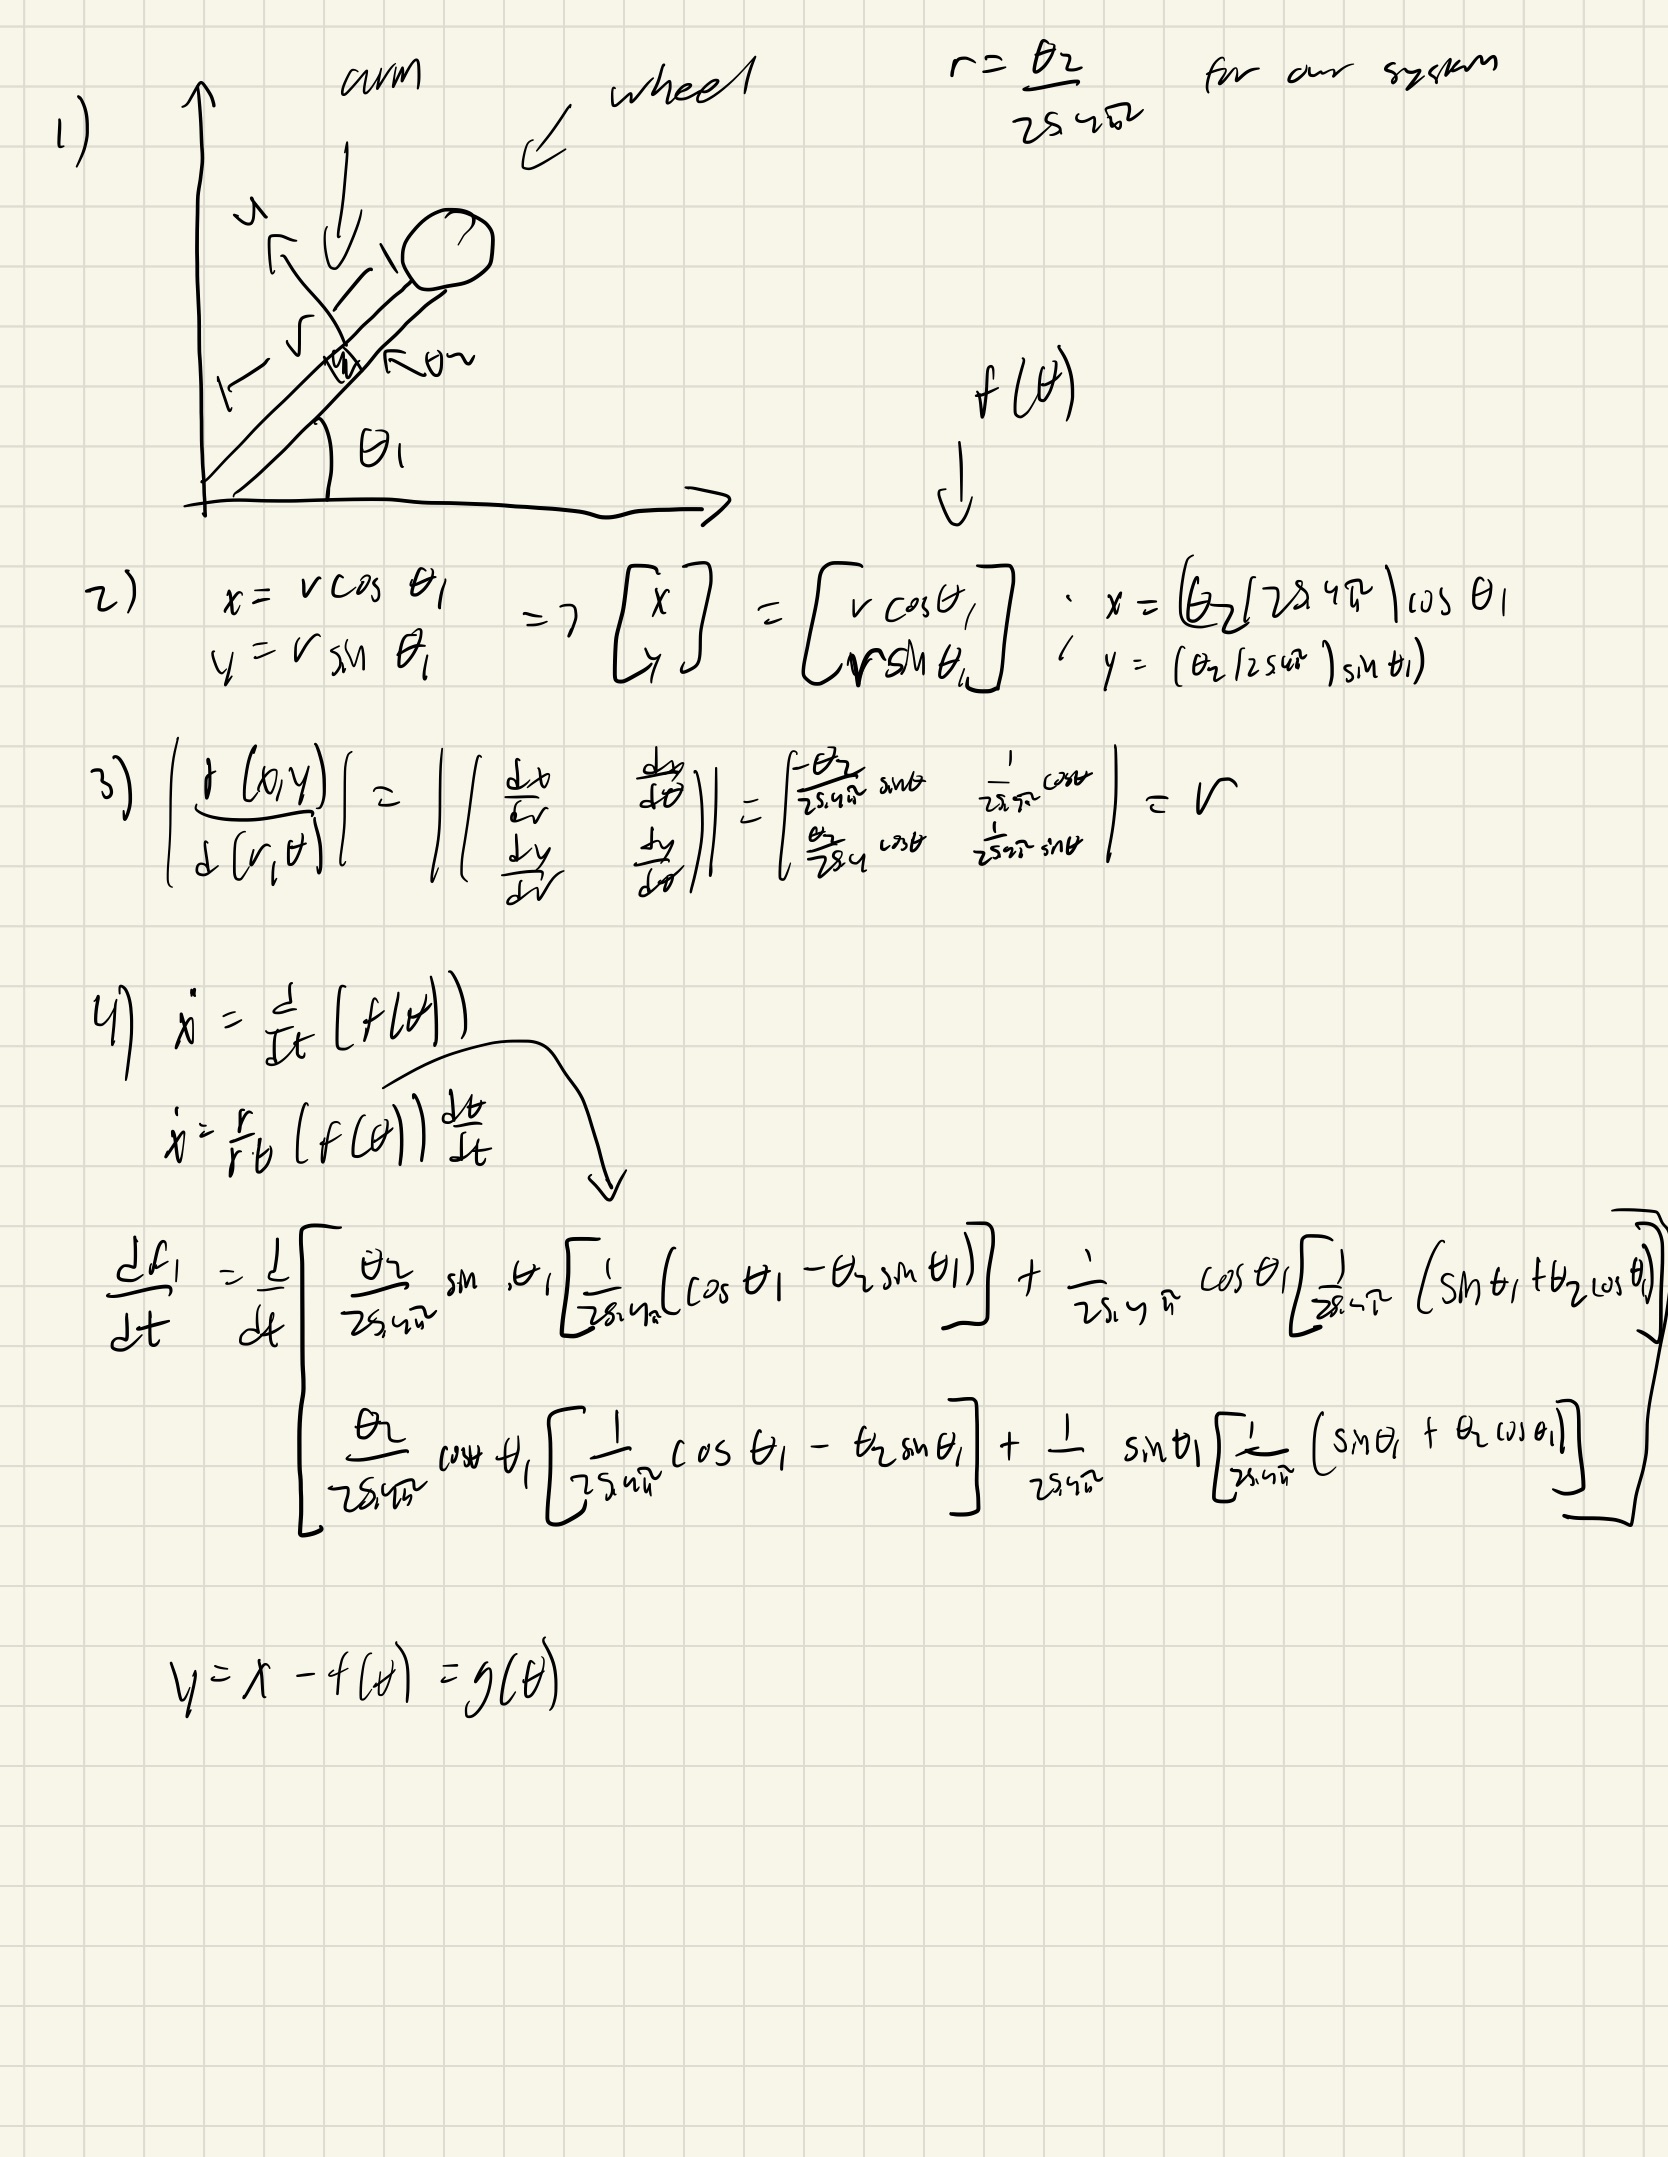 1)
arm
wheel
r = θ2 / 25.4π² for our system
r
θ2
θ1
f(θ)
2) x = r cos θ1
y = r sin θ1
=> [x y] = [r cos θ1 r sin θ1] ; x = (θ2 / 25.4π²) cos θ1
y = (θ2 / 25.4π²) sin θ1)
3) | d(x,y) / d(r,θ) | = | ( dx/dr dx/dθ dy/dr dy/dθ ) | = | -θ2/25.4π² sinθ 1/25.4π² cosθ θ2/25.4 cosθ 1/25.4π² sinθ | = r
4) ẋ = d/dt (f(θ))
ẋ = r/rθ (f(θ)) dθ/dt
df1/dt = d/dt [ θ2/25.4π² sin θ1 [ 1/25.4π² (cos θ1 - θ2 sin θ1) ] + 1/25.4π² cos θ1 [ 1/25.4π² (sin θ1 + θ2 cos θ1) ]
θ2/25.4π² cos θ1 [ 1/25.4π² cos θ1 - θ2 sin θ1 ] + 1/25.4π² sin θ1 [ 1/25.4π² (sin θ1 + θ2 cos θ1) ] ]
y = x - f(θ) = g(θ)